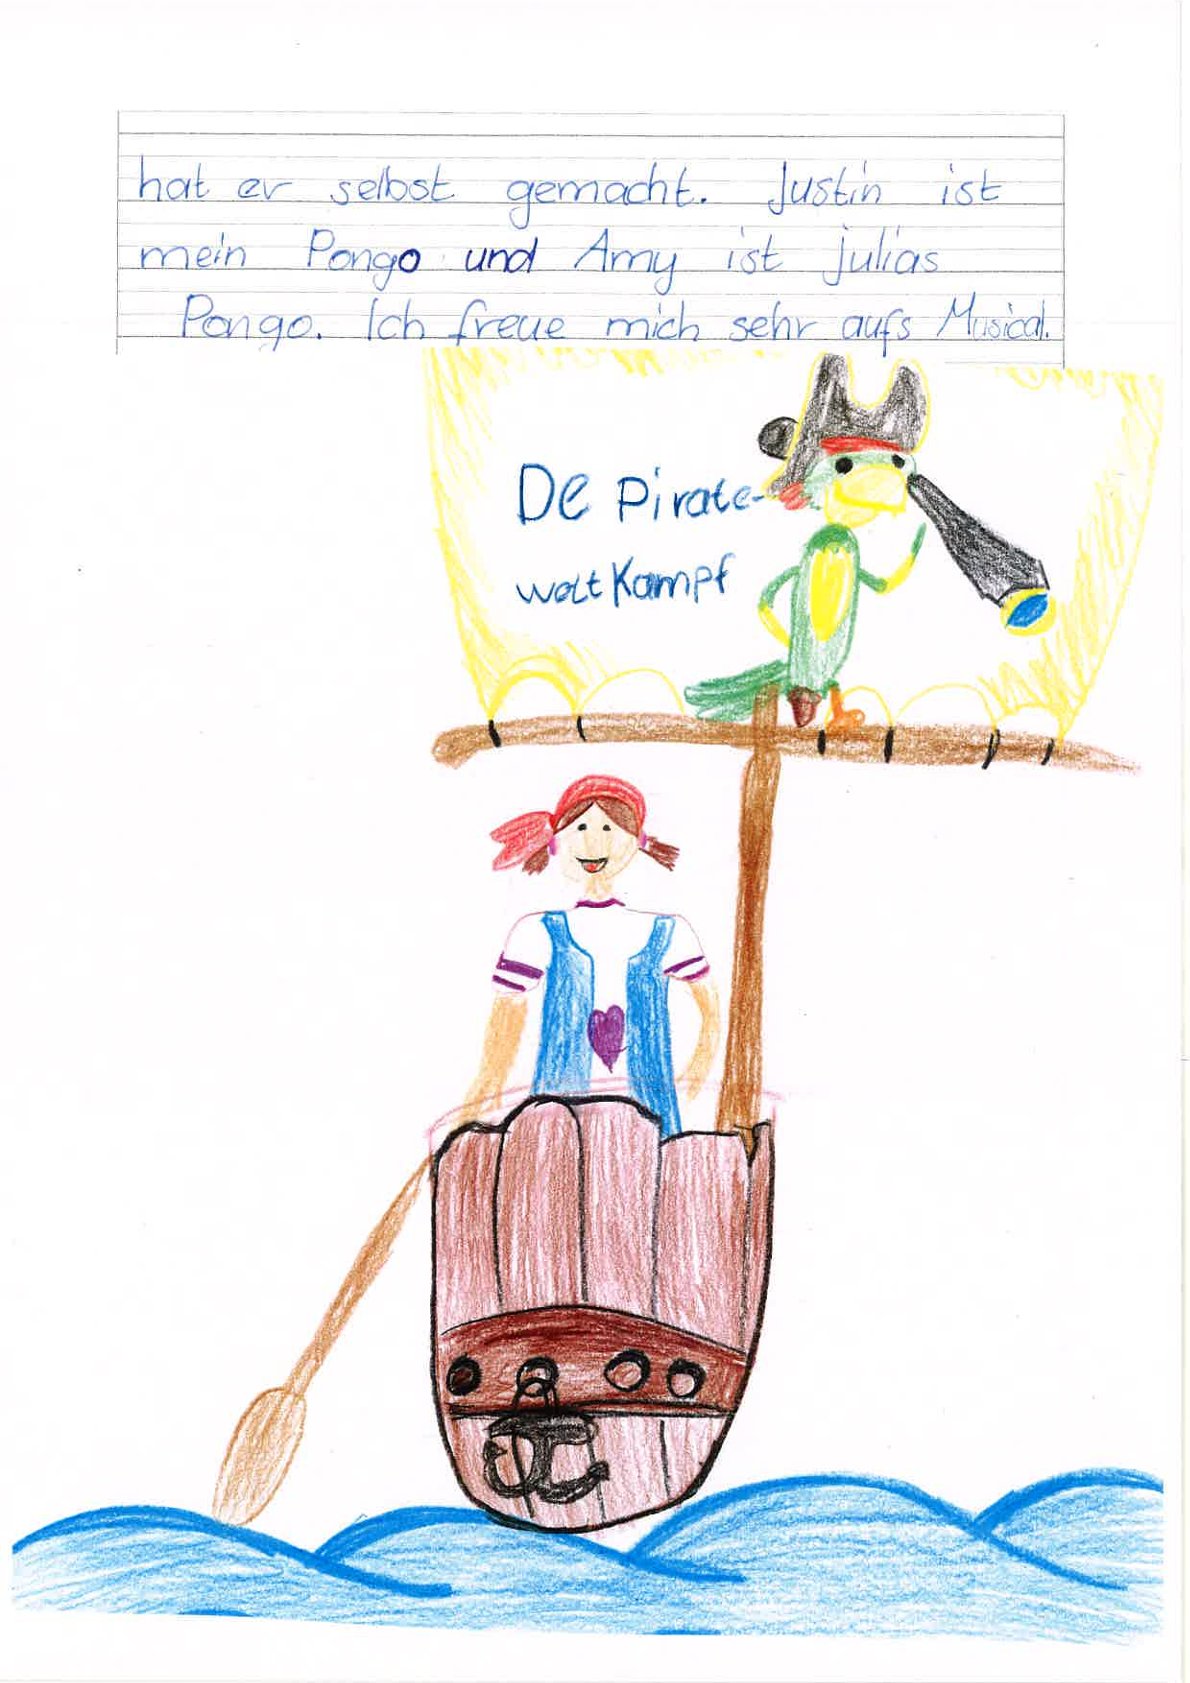 hat er selbst gemacht. Justin ist
mein Pongo und Amy ist julias
Pongo. Ich freue mich sehr aufs Musical.
De Pirate-
wett Kampf